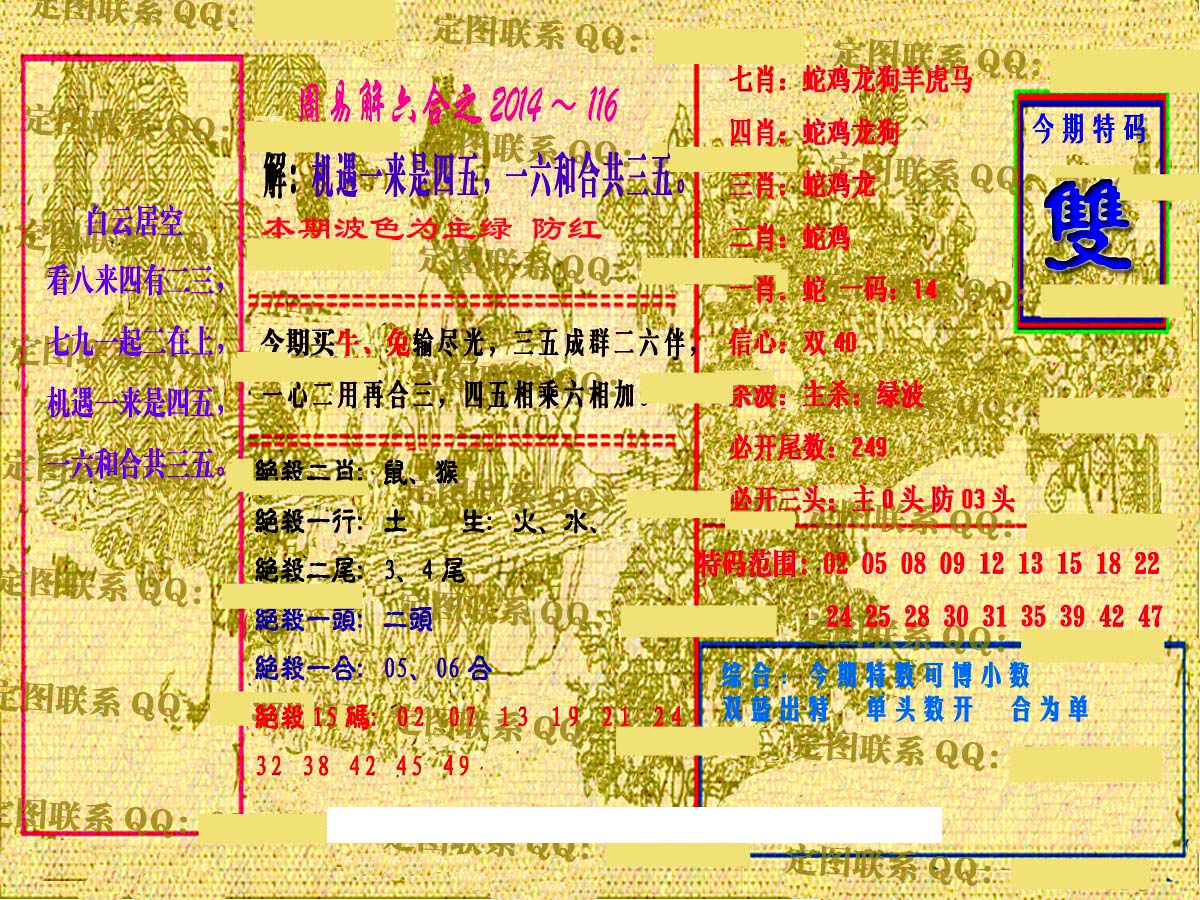 周易解六合之2014～116
解：机遇一来是四五，一六和合共三五。
本期波色为主绿 防红
白云居空
看八来四有二三，
七九一起二在上，
机遇一来是四五，
一六和合共三五。
今期买牛、兔输尽光，三五成群二六伴，
一心二用再合三，四五相乘六相加。
絕殺二肖：鼠、猴
絕殺一行：土 生：火、水、
絕殺二尾：3、4尾
絕殺一頭：二頭
絕殺一合：05、06合
絕殺15碼：02 07 13 19 21 24
32 38 42 45 49
七肖：蛇鸡龙狗羊虎马
四肖：蛇鸡龙狗
三肖：蛇鸡龙
二肖：蛇鸡
一肖：蛇 一码：14
信心：双40
杀波：主杀：绿波
必开尾数：249
必开三头：主0头防03头
特码范围：02 05 08 09 12 13 15 18 22
24 25 28 30 31 35 39 42 47
今期特码
雙
综合：今期特数可博小数
双蓝出特 单头数开 合为单
定图联系QQ：
定图联系QQ：
定图联系QQ：
定图联系QQ：
定图联系QQ：
定图联系QQ：
定图联系QQ：
定图联系QQ：